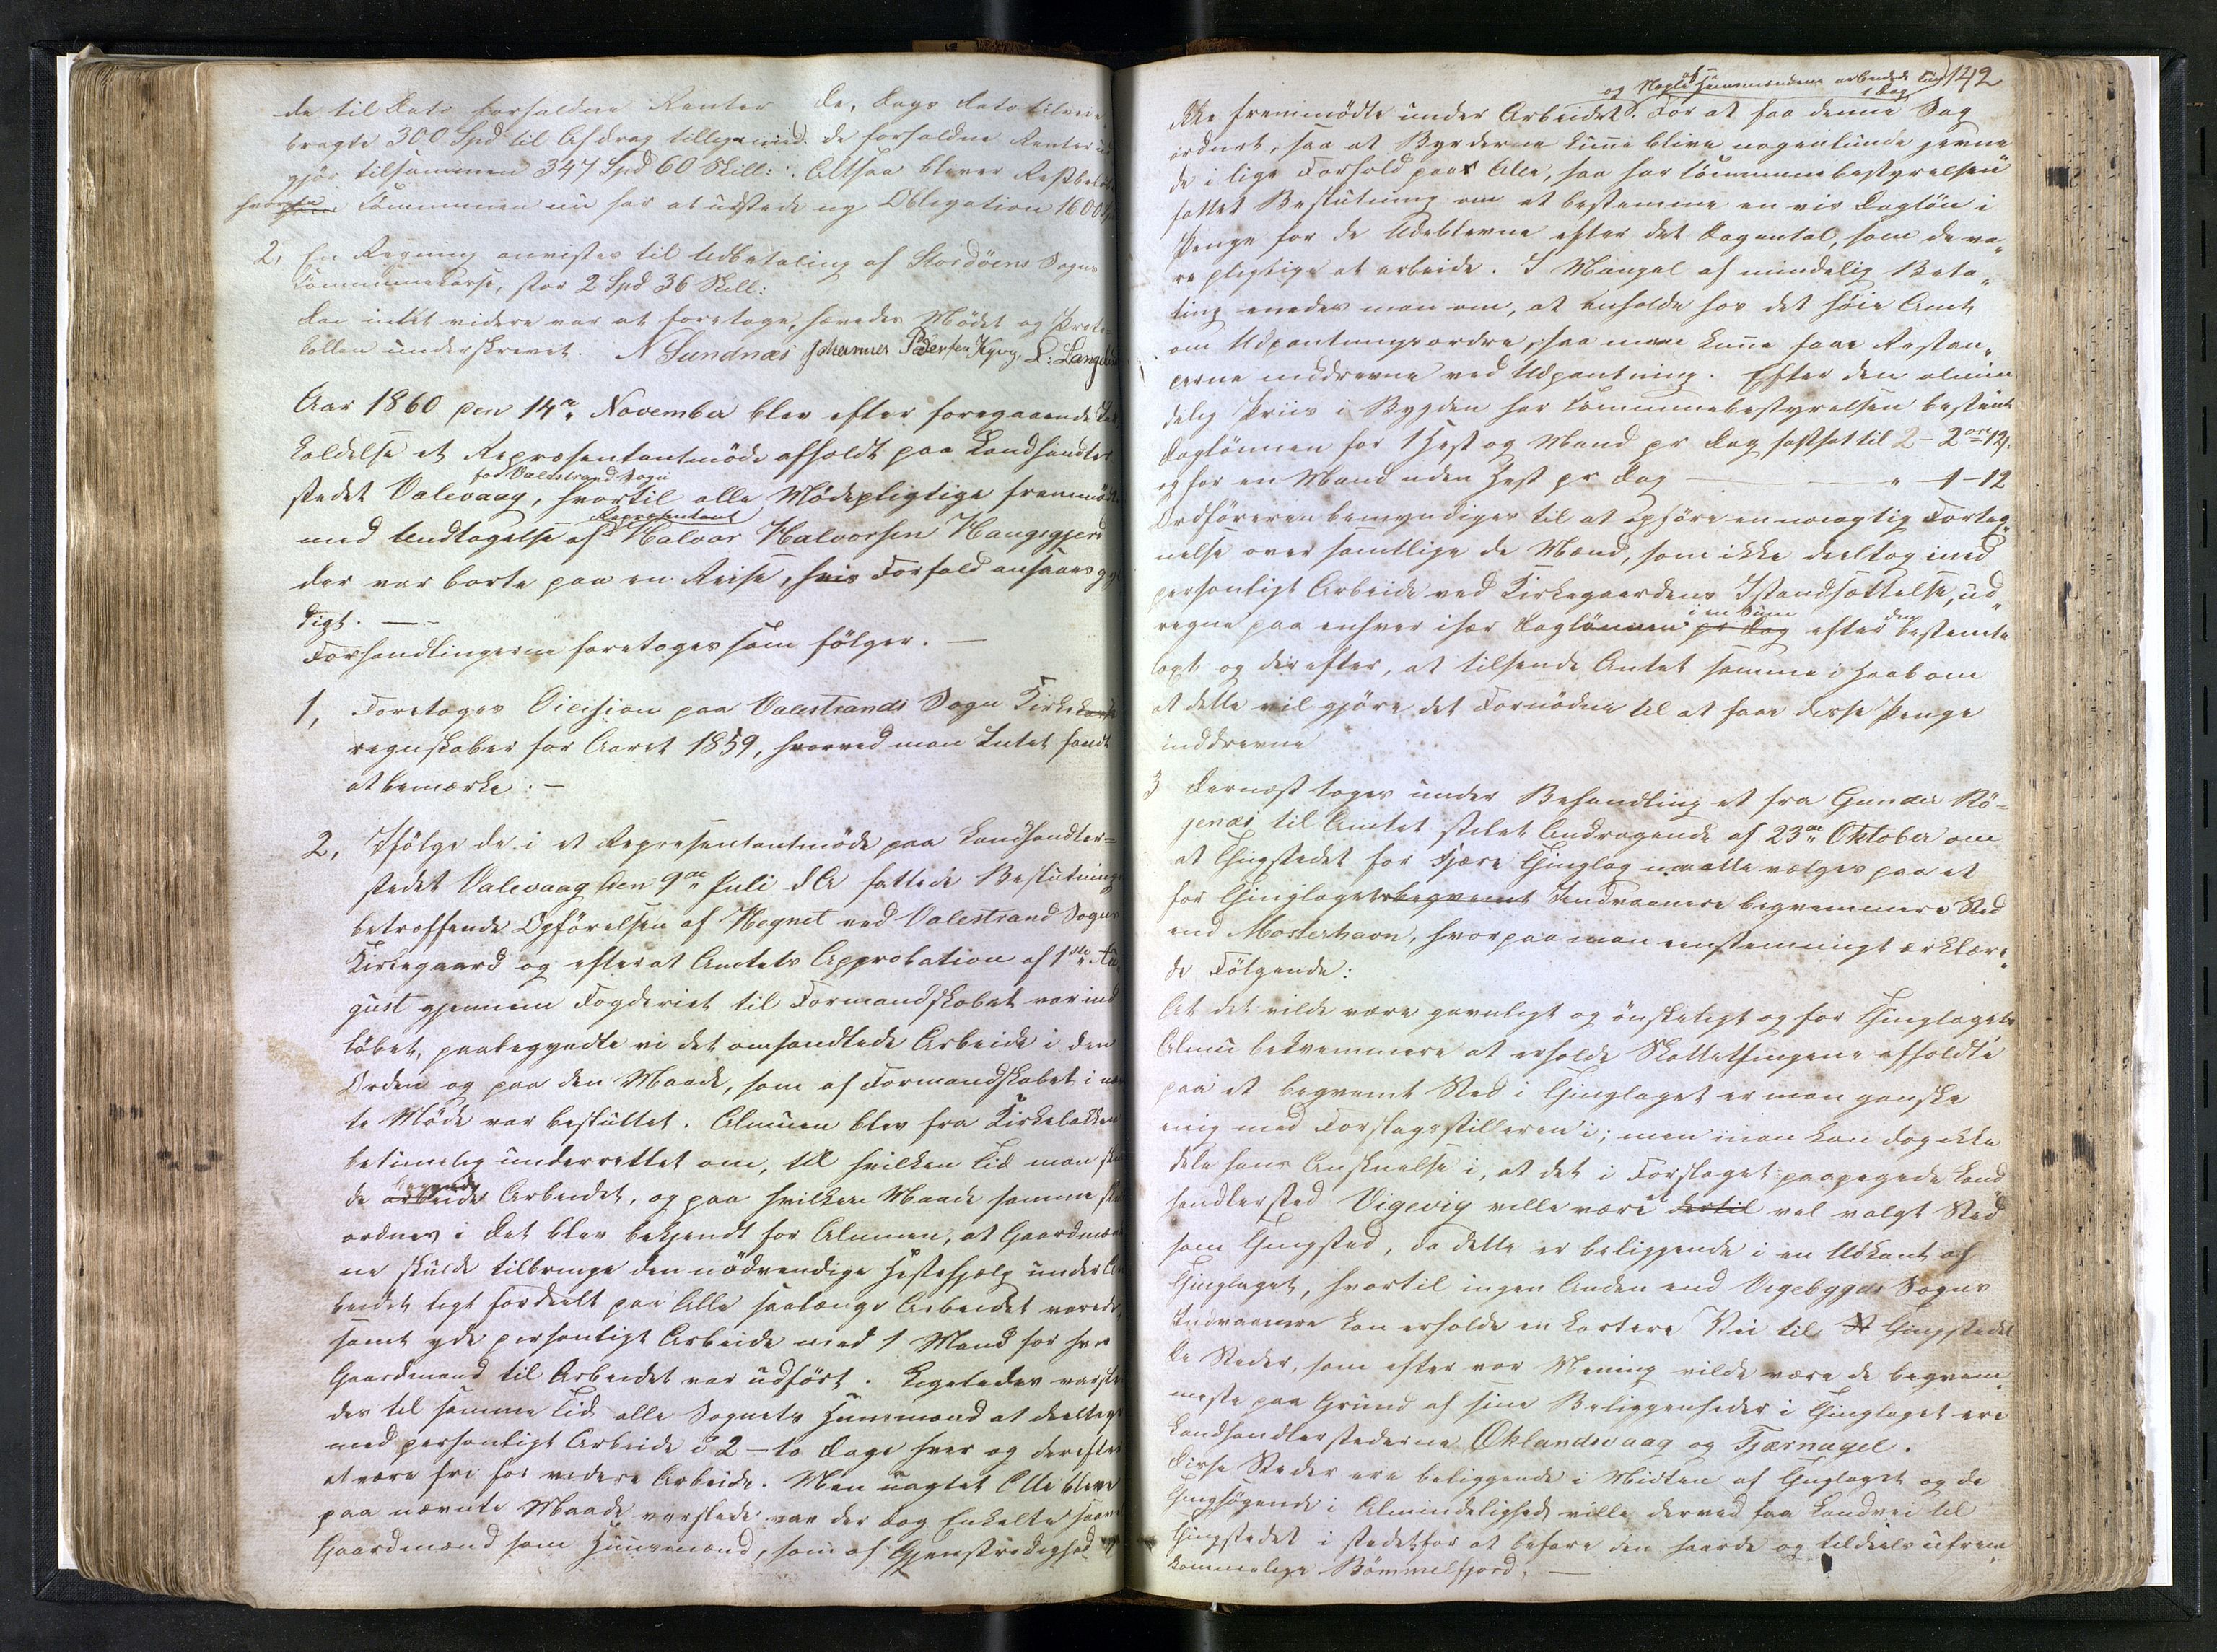 de til Dato forfaldne Renter De, Dags Dato tilveie
bragte 300 Spd til Afdrag tillige med de forfaldne Renter ud
gjør tilsammen 347 Spd 60 Skill: . Altsaa bliver Restbeløb
hvorfor Kommunen nu har at udstede ny Obligation 1600
2, En Regning anvistes til Udbetaling af Stordøens Sogns
Kommunekasse, stor 2 Spd 36 Skill:
Da intet videre var at foretage, hævedes Mødet og Proto-
kollen underskrevet. N Sundnæs Johannes Pedersen Kyvig. L: Langeland
Aar 1860 den 14de November blev efter foregaaende Ind
kaldelse et Repræsentantmöde afholdt paa Landhandler
for Valestrand Sogn
stedet Valevaag, hvortil alle Mödepligtige fremmödte
Repræsentant
med Undtagelse af Halvor Halvorsen Haugsgjerd
der var borte paa en Reise, hvis Forfald ansaaes gyl
digt. —
Forhandlingerne foretoges som fölger. —
1, Foretoges Decision paa Valestrands Sogn Kirkekasse
regnskaber for Aaret 1859, hvorved man Intet fandt
at bemærke: —
2, Ifölge de i et Representantmöde paa Landhandler=
stedet Valevaag den 9de Juli d A fattede Beslutninger
betræffende Opförelsen af Hegnet ved Valestrand Sogns
Kirkegaard og efterat Amtets Approbation af 1ste Au
gust gjennem Fogderiet til Formandskabet var ind
löbet, paabegyndte vi det omhandlede Arbeide i den
Orden og paa den Maade, som af Formandskabet i næv
te Möde var besluttet. Almuen blev fra Kirkebakken
betimelig underrettet om, til hvilken Tid man skul
begynde
de arbeide Arbeidet, og paa hvilken Maade samme sku
ordnes i Det blev bekjendt for Almuen, at Gaardmæn
ne skulde tilbringe den nödvendige Hestehjælp under Ar
beidet ligt fordeelt paa Alle saalænge Arbeidet varede,
samt yde personligt Arbeide med 1 Mand for hver
Gaardmand til Arbeidet var udfört. Ligeledes varsle
des til samme Tid alle Sognets Huusmænd at deeltage
med personligt Arbeide i 2 – to Dage hver og derefter
at være fri for videre Arbeide. Men uagtet Alle bleve
paa nævnte Maade varslede var der dog Enkelte saavel
Gaardmænd som Huusmænd, som af Gjenstridighed
142
og Nogle af Huusmændene arbeidede kun
1 Dag
ikke fremmödte under Arbeidet. For at faa denne Sag
ordnet, saa at Byrderne kunne blive nogenlunde jevne
de i lige Forhold paa Alle, saa har Kommunebestyrelsen
fattet Beslutning om at bestemme en vis Daglön i
Penge for de Udeblevne efter det Dagantal, som de va„
re pligtige at arbeide. I Mangel af mindelig Beta„
ling enedes man om, at anholde hos det höie Amt
om Udpantningsordre, saa man kunne faae Restan„
cerne inddrevne ved Udpantning. Efter den almin
delig Priis i Bygden har Kommunebestyrelsen bestemt
Daglönnen for 1 Hest og Mand pr Dag fastsat til 2 – 2 ort 12 s.
og for en Mand uden Hest pr Dag — „ – 1 – 12
Ordföreren bemyndiges til at opföre en nöiagtig Forteg„
nelse over samtlige de Mænd, som ikke deeltog med
personligt Arbeide ved Kirkegaardens Istandsættelse, ud„
i en Sum den
regne paa enhver især Daglönnen pr Dag efter bestemte
Taxt og derefter, at tilsende Amtet samme i Haab om
at dette vil gjöre det Fornödne til at faae disse Penge
inddrevne
3 Dernæst toges under Behandling et fra Gunder Rö=
jenæs til Amtet stilet Andragende af 23de Oktober om
at Thingstedet for Fjære Thinglag maatte vælges paa et
for Thinglagets begvemt Indvaanere begvemmere Sted
end Mosterhavn, hvorpaa man eenstemmigt erklære„
de Fölgende:
At det vilde være gavnligt og önskeligt og for Thinglagets
Almu bekvemmere at erholde Skattethingene afholdte
paa et begvemt Sted i Thinglaget er man ganske
enig med Forslagsstilleren i; men man kan dog ikke
dele hans Anskuelse i, at det i Forslaget paapegede Land
handlersted Vigevig ville være et dertil vel valgt Sted
som Thingsted, da dette er beliggende i en Udkant af
Thinglaget, hvortil ingen Anden end Vigebygds Sogns
Indvaanere kan erholde en kortere Vei til Thingstedet
De Steder, som efter vor Mening vilde være de begvem„
meste paa Grund af sine Beliggenheder i Thinglaget ere
Landhandlerstederne Oklandsvaag og Tjærnagel.
Disse Steder ere beliggende i Midten af Thinglaget og de
Thingsögende i Almindelighed ville derved faa Landvei til
Thingstedet i stedetfor at befare den haarde og tildeels ufrem„
kommelige Bömmelfjord. —